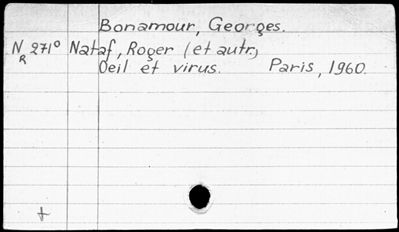 Bonamour, Georges.
N 271° Nataf, Roger (et autr.)
R
Oeil et virus. Paris, 1960.